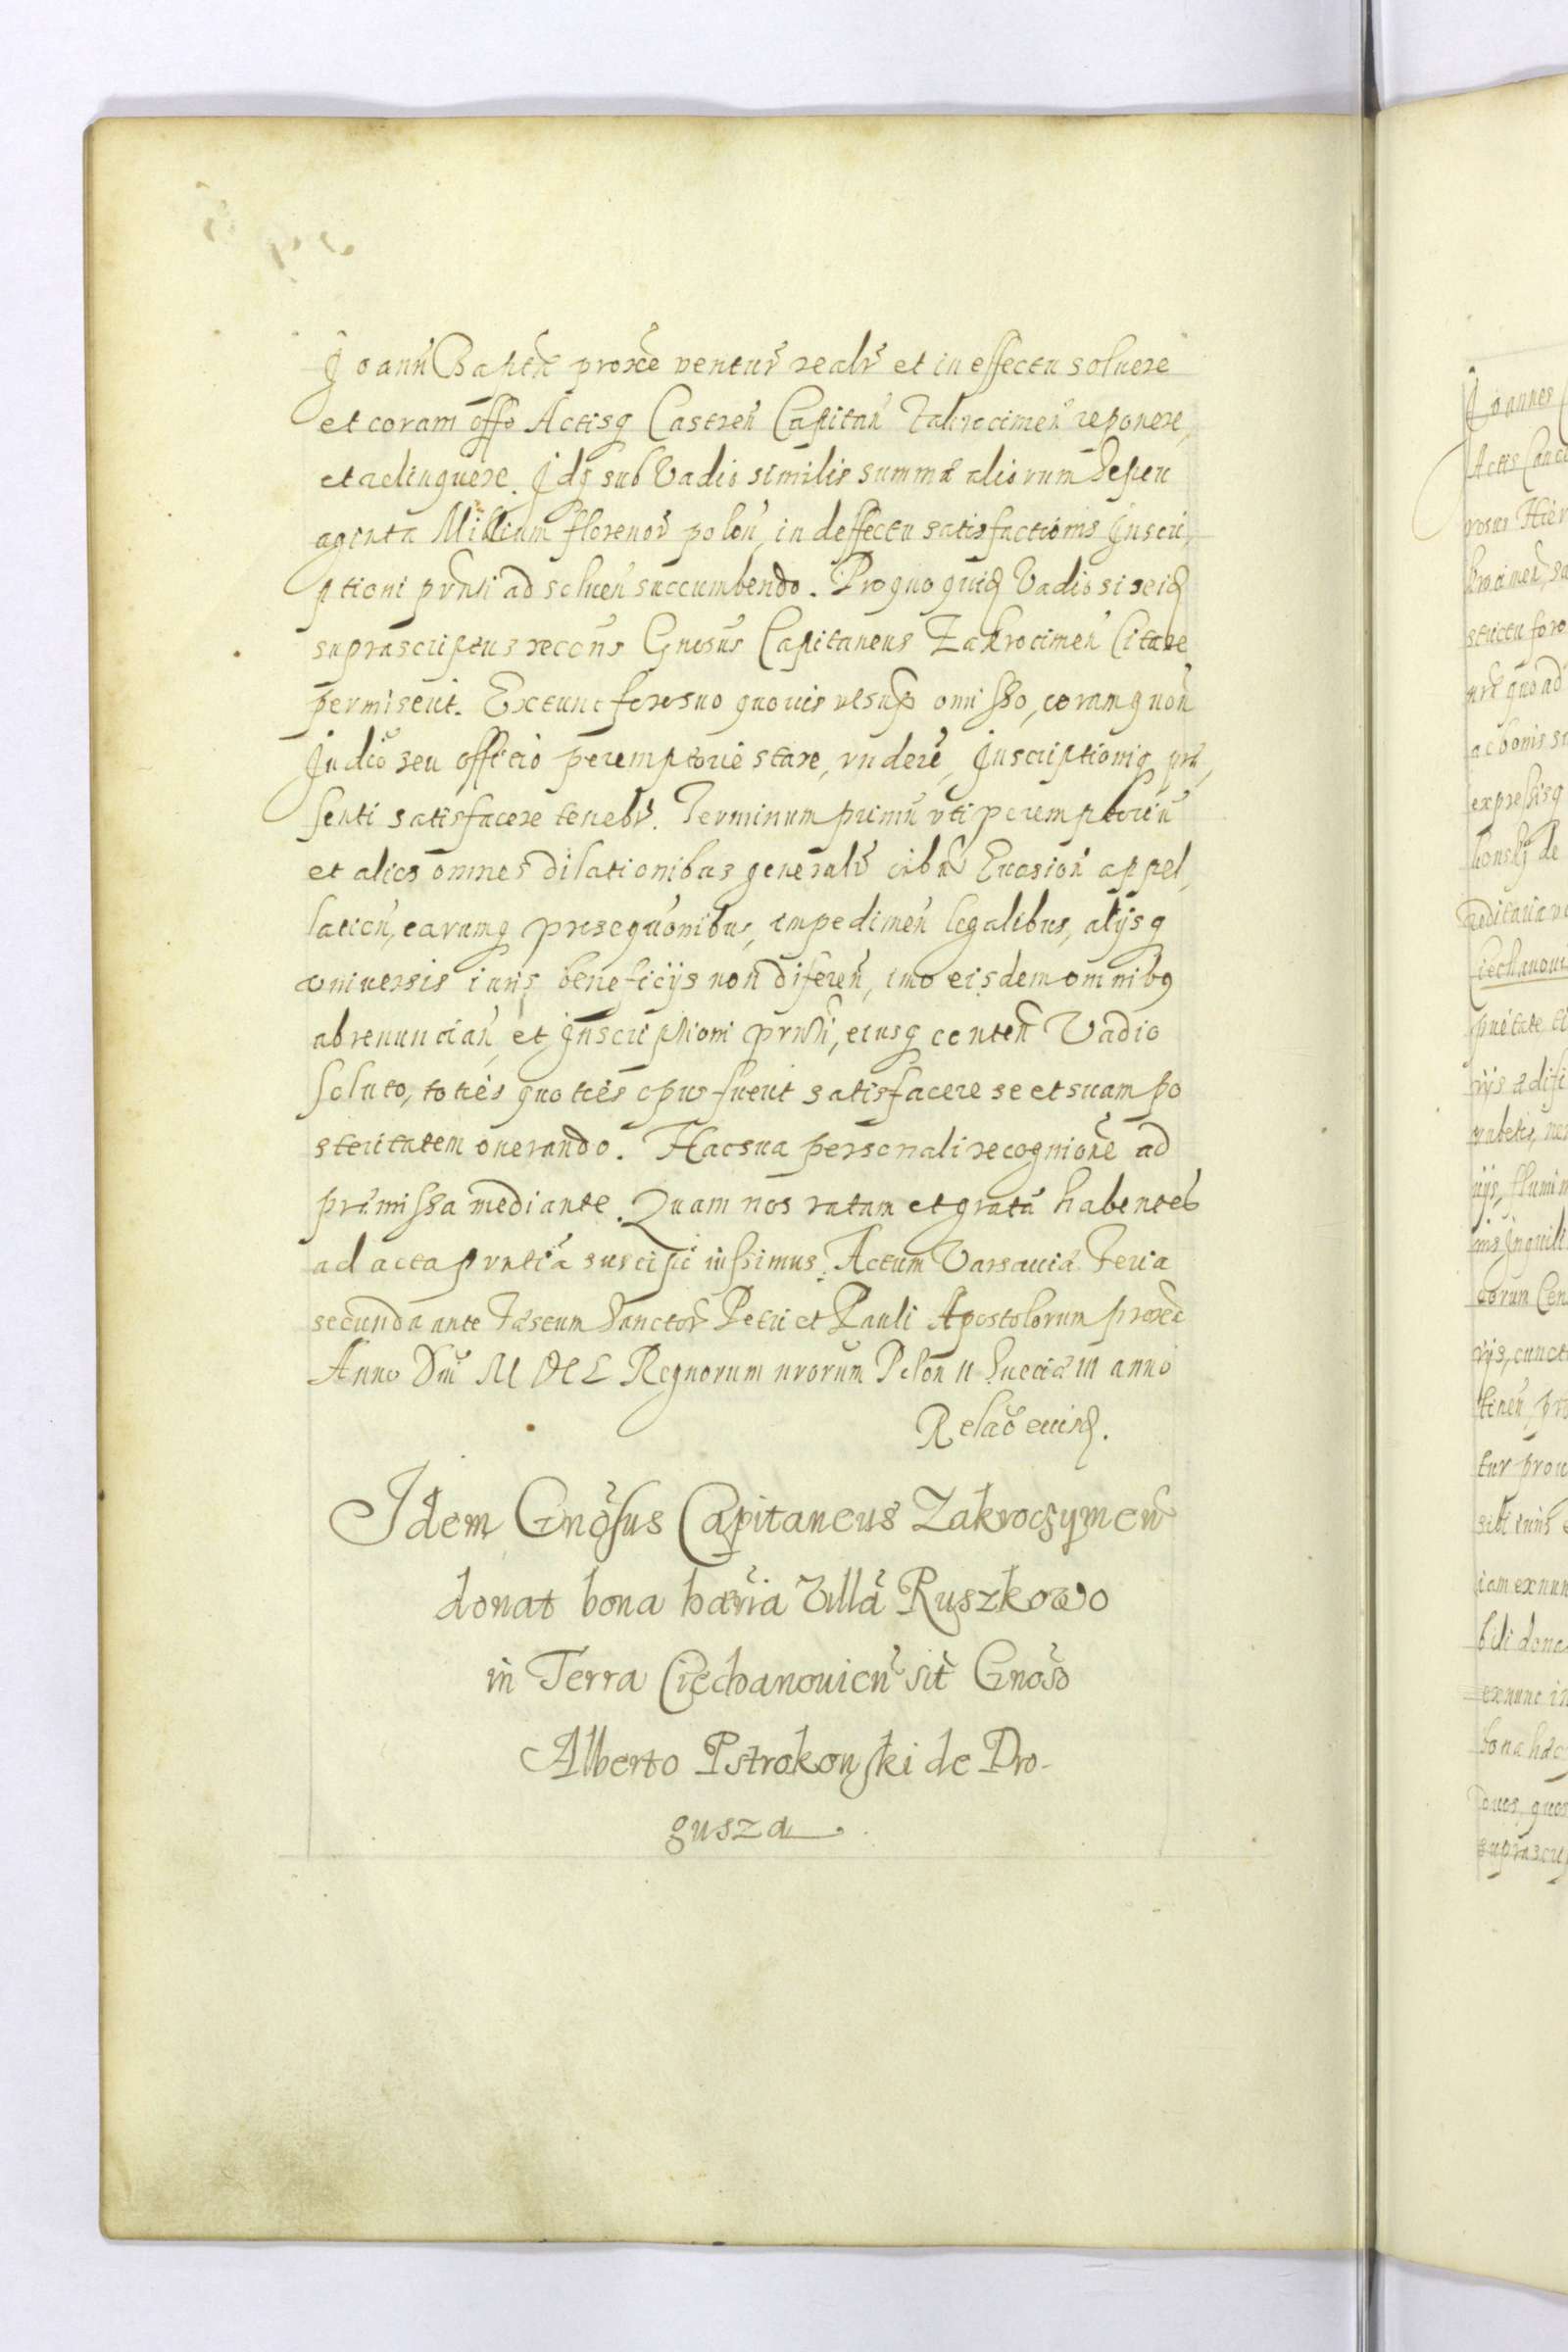 Joann Baptæ proxe ventur realr et in effectu soluere
et coram offo Actisq Castren Capitan Zakrocimen reponere,
et relinquere. Idq sub Vadio similis summæ aliorum Septu
aginta Millium florenor polon, in deffectu satisfactionis Inscri,
ptioni prnti ad soluen succumbendo. Pro quo quid Vadio si seid
suprascriptus recons Gnosus Capitaneus Zakrocimen Citare
permiserit. Extunc foro suo quouis resup omisso, coram quon
Judicio seu officio peremptorie stare, rndere, Inscriptioniq præ,
senti satisfacere tenebr. Terminum primu vti peremptoriu
et alios omnes dilationibus generalr Euasion appel,
lation, earumq prosequonibus, impedimen legalibus, alijsq
vniuersis iuris beneficijs non diferen, imo eisdem omnibq
abrenuncian, et Inscriptioni prnti, eiusq conten Vadio
soluto, toties quoties opus fuerit satisfacere se et suam po
steritatem onerando. Hac sua personali recognione ad
præmissa mediante. Quam nos ratam et gratã habentes
ad acta prntia suscipi iussimus. Actum Varsauiæ Feria
secunda ante Festum Sanctor Petri et Pauli Apostolorum proxe
Anno Dni M DC L Regnorum nrorum Polon II Sueciæ III anno
Relao eiusd.
Idem Gnosus Capitaneus Zakroczymen
donat bona hæria Villã Ruszkowo
in Terra Ciechanouien sit Gnoso
Alberto Pstrokonski de Dro-
gusza
Joannes
Actis
rosus Hier
krocimen, sa
strictu foro
iure quo ad
ac bonis su
expressisq
konskj de
reditaria
Ciechanoui
prietate
rijs ædifi
rubetis,
uijs, flumin
nis Inquili
eorum Cen
rijs, cunct
tinen, pro
tur prou
sibi iuris
iam ex nun
bili dona
exnunc in
bona hæc
suprascri